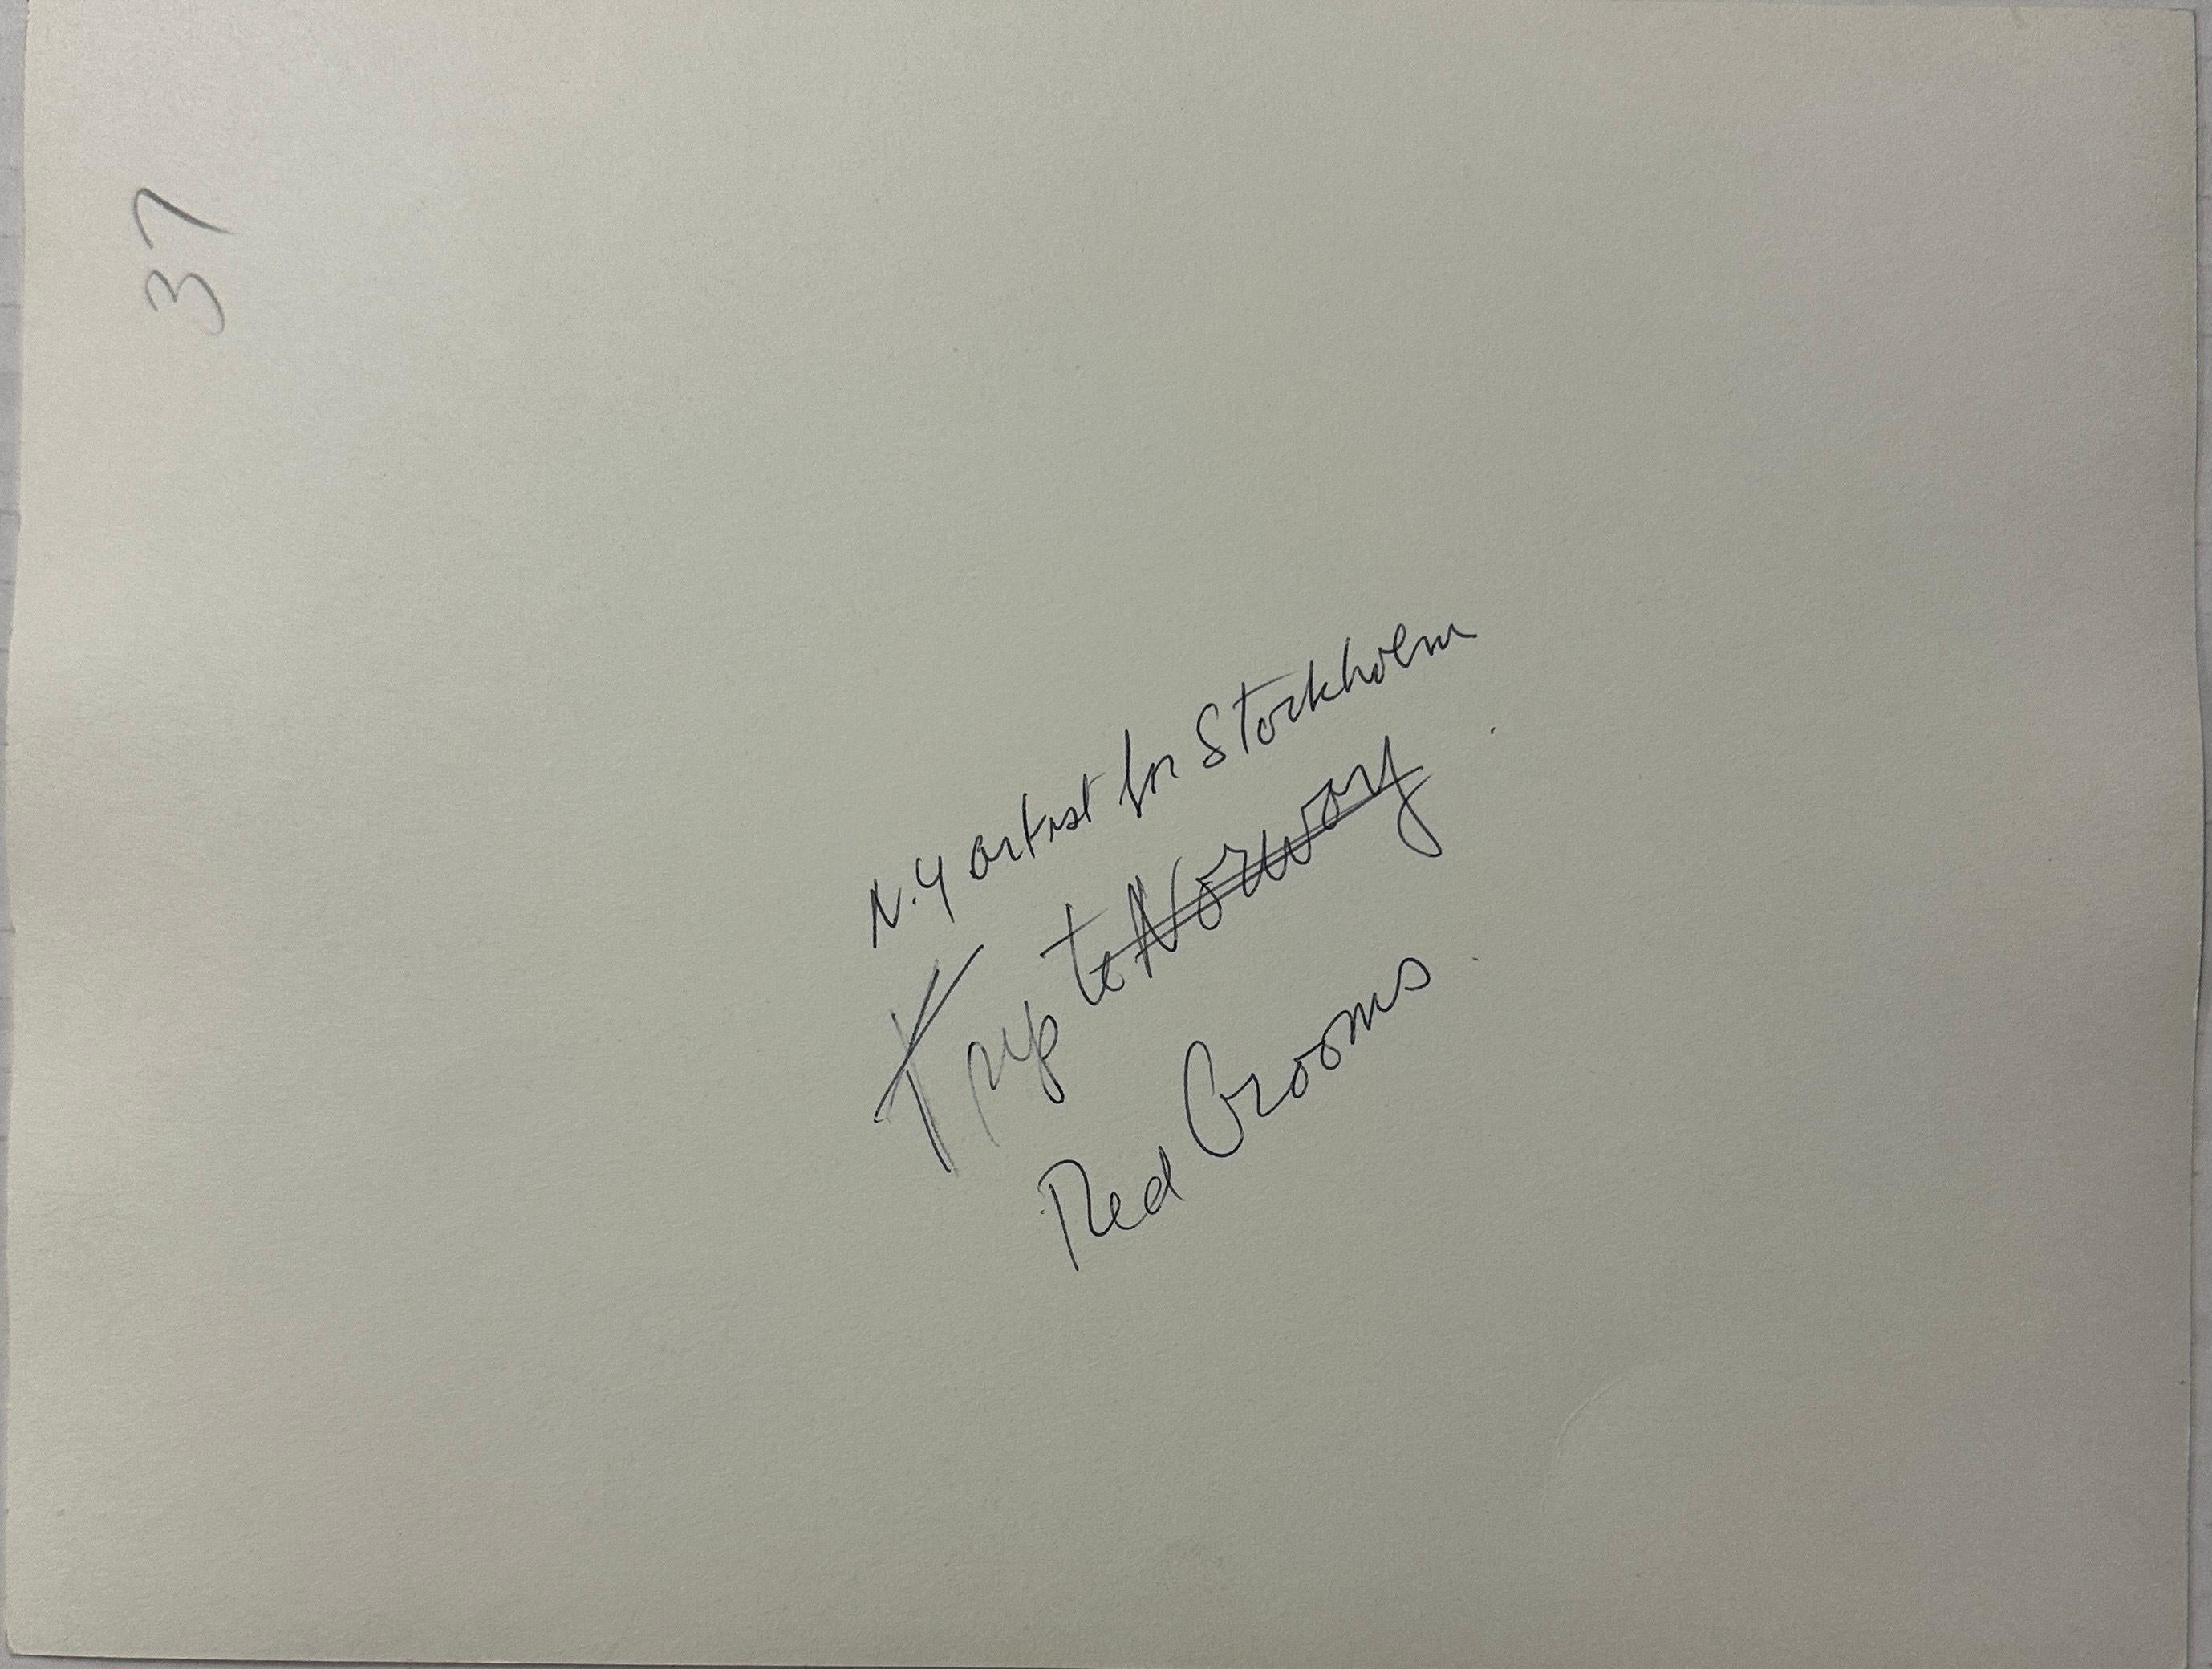 37
N.Y artist for Stockholm
Trip to Norway
Red Grooms